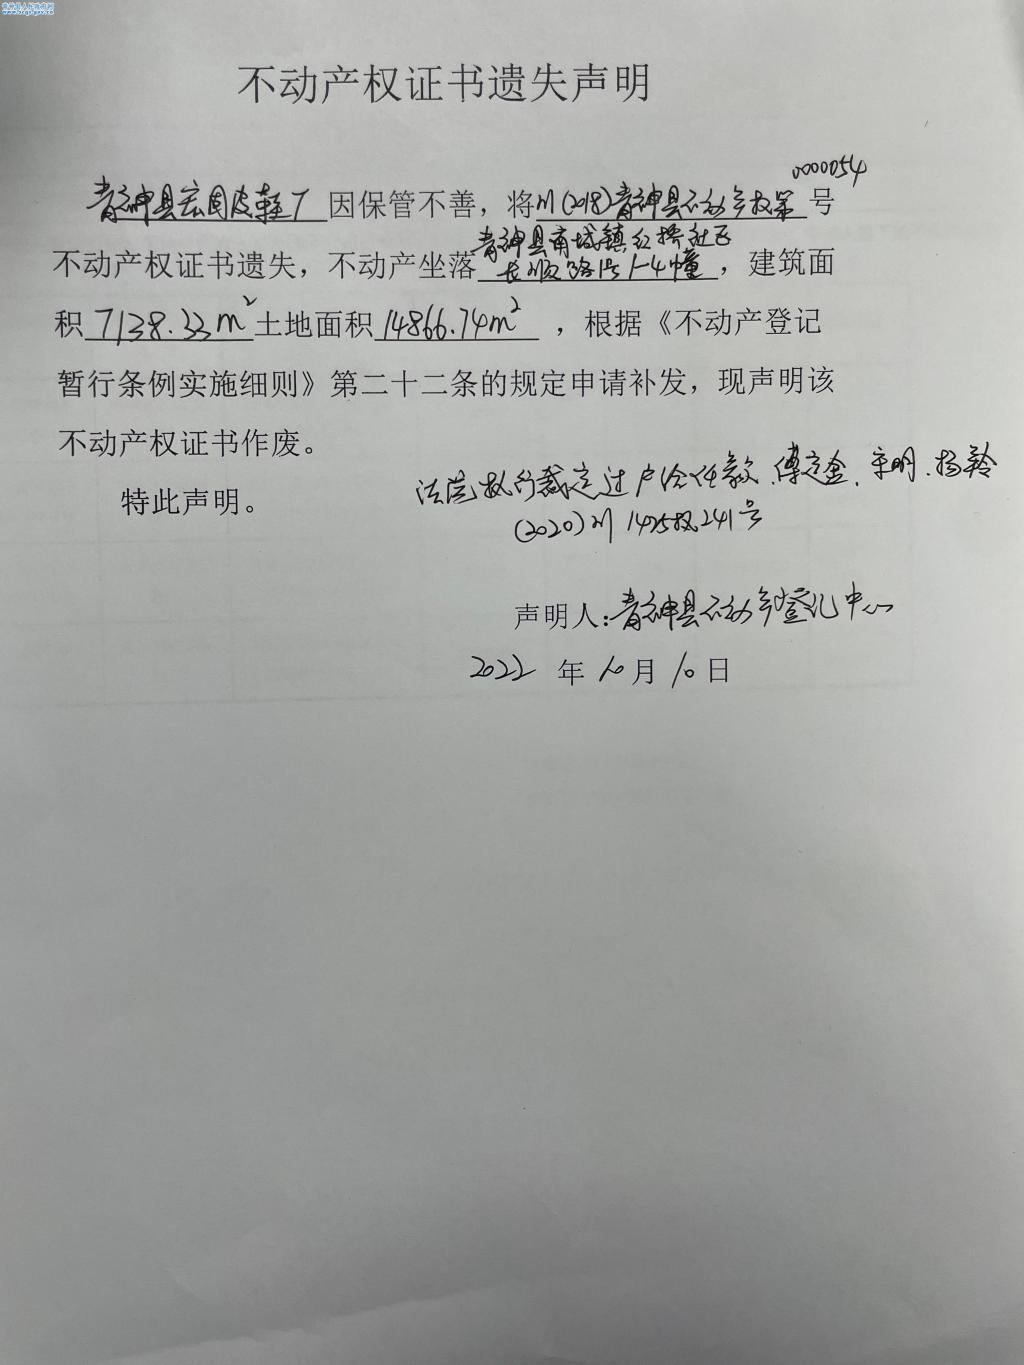 不动产权证书遗失声明
0000054
青神县宏固皮鞋厂因保管不善，将川(2018)青神县不动产权第号
青神县南城镇红桥社区
不动产权证书遗失，不动产坐落长顺路1号1-4幢，建筑面
积7138.33m²土地面积14866.74m²，根据《不动产登记
暂行条例实施细则》第二十二条的规定申请补发，现声明该
不动产权证书作废。
特此声明。
法院执行裁定过户给任教、傅定金、宋明、杨羚
(2020)川1425执241号
声明人:青神县不动产登记中心
2022年10月10日